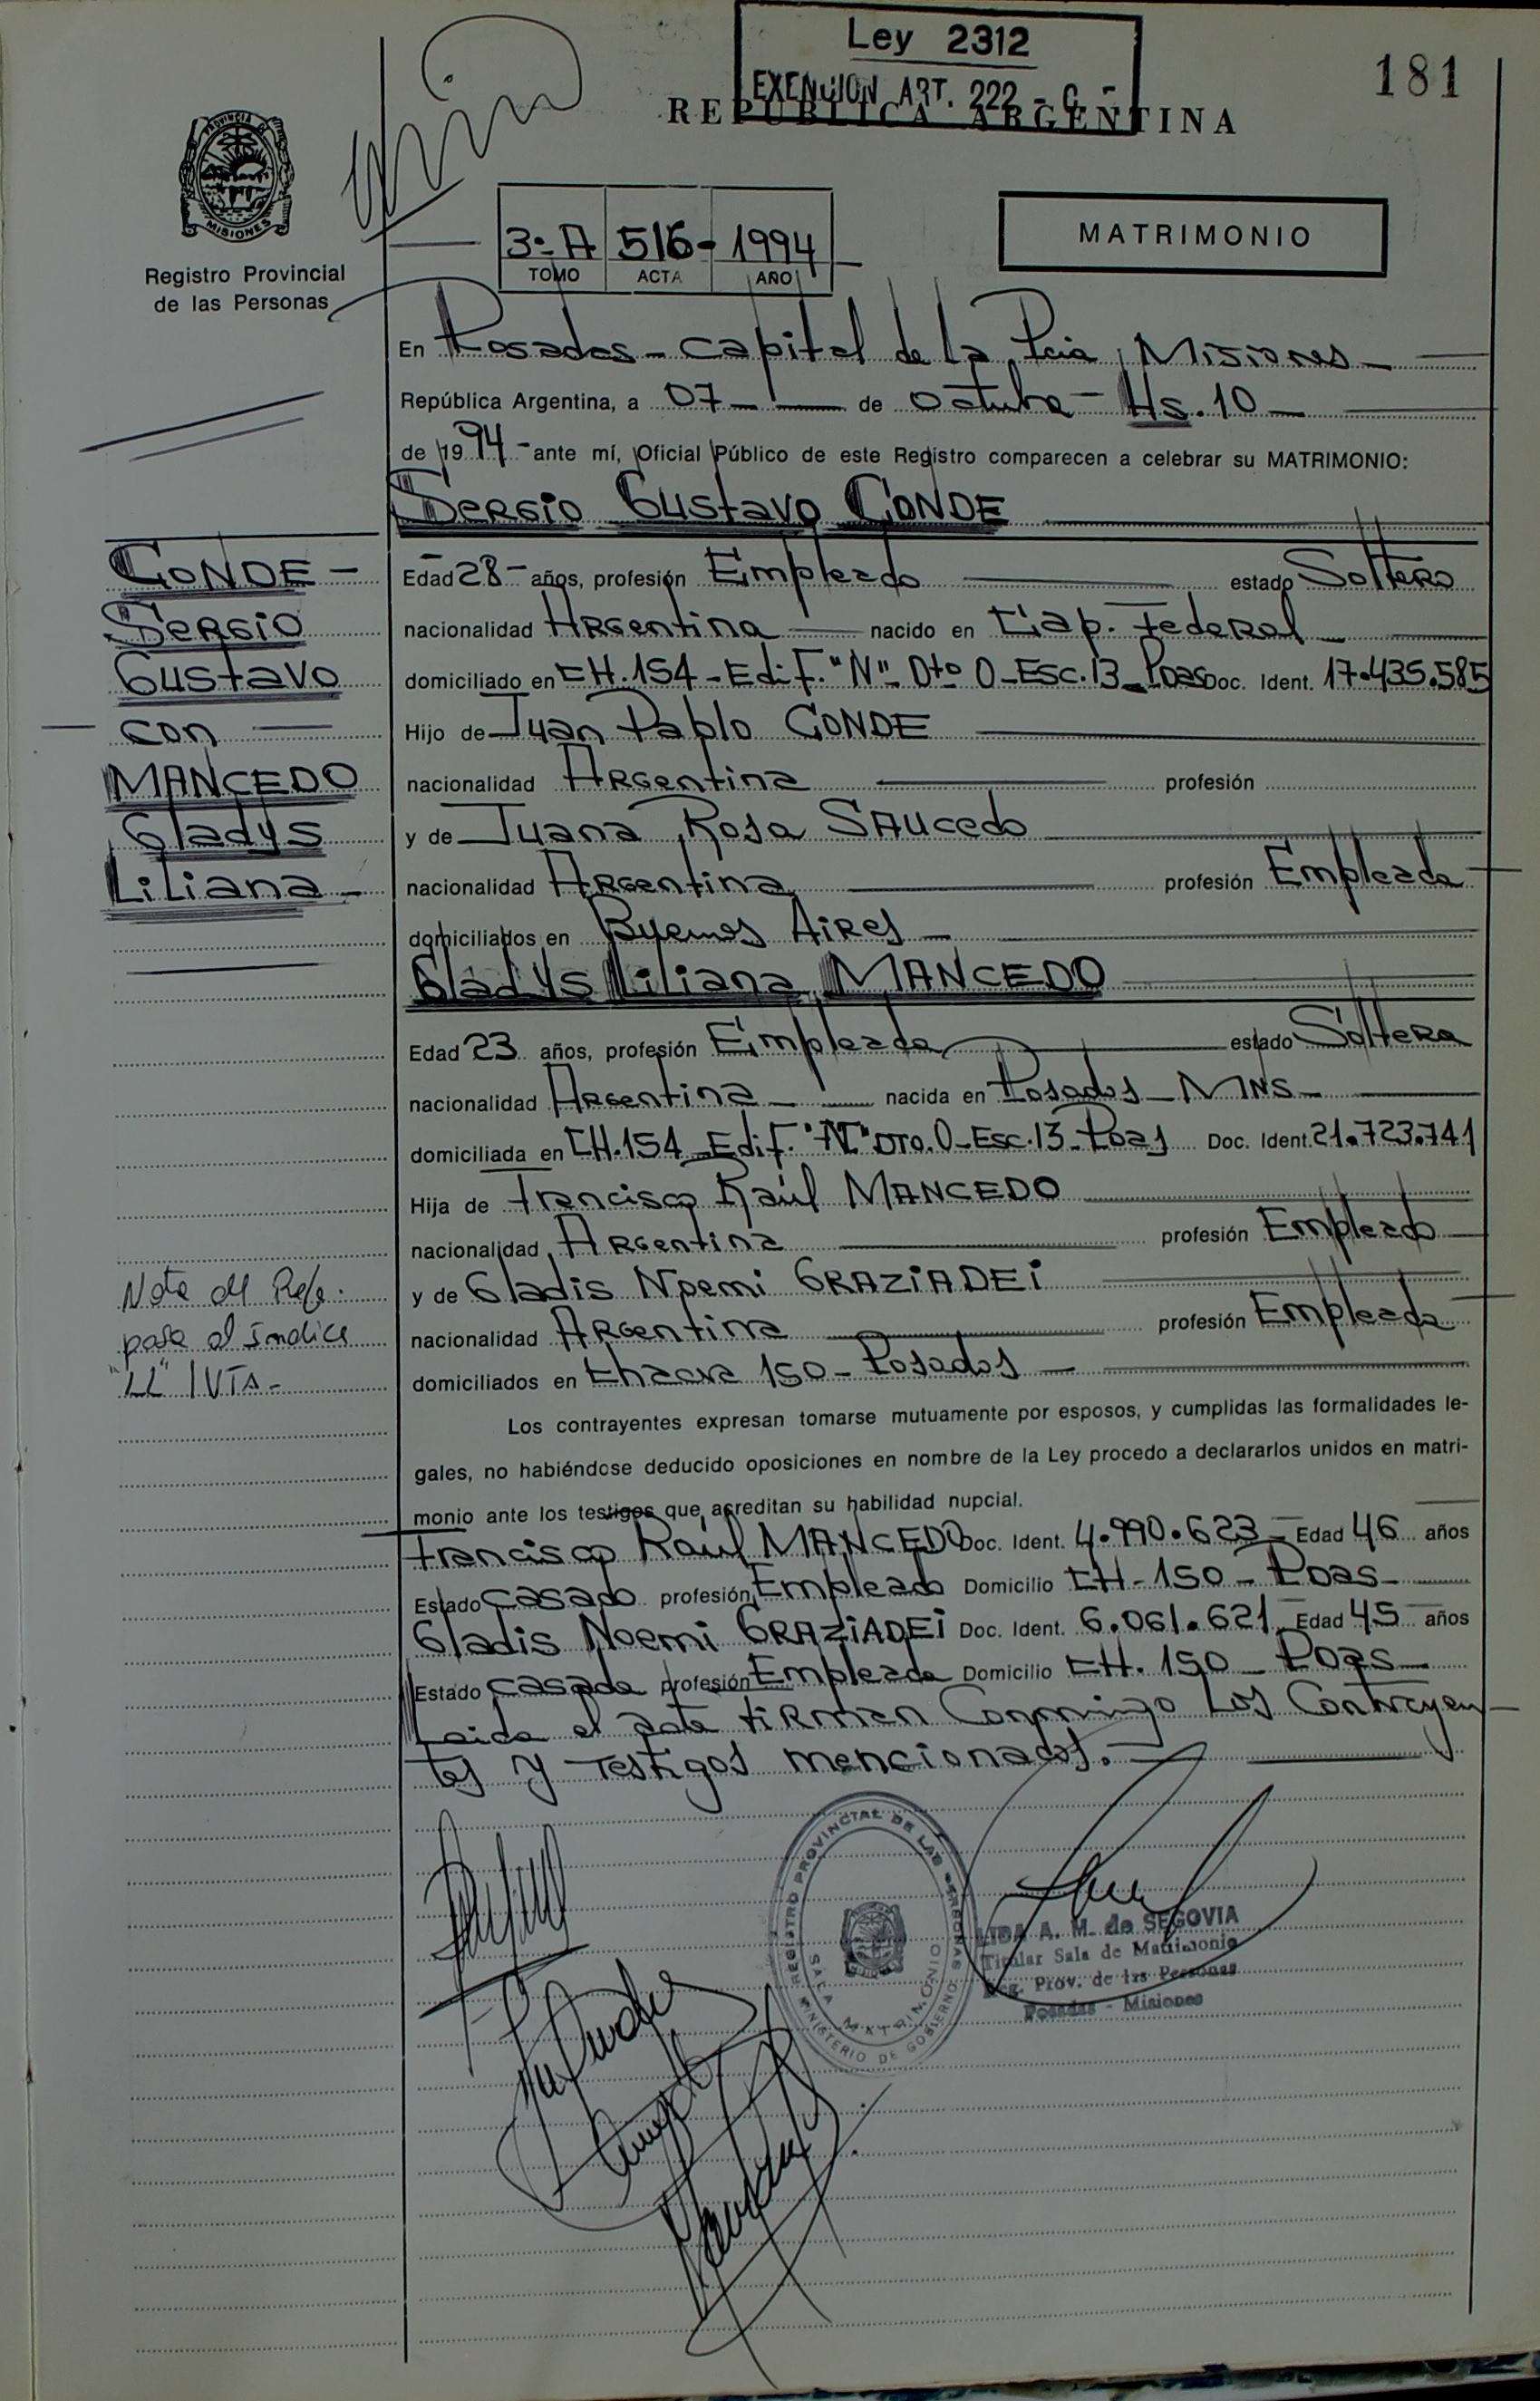 Ley 2312
EXENCION ART. 222 - C -
181
REPUBLICA ARGENTINA
PROVINCIA DE
MISIONES
Registro Provincial
de las Personas
3º A 516 - 1994
TOMO ACTA AÑO
MATRIMONIO
En Posadas - Capital de la Pcia Misiones -
República Argentina, a 07 - de octubre - Hs. 10 -
de 1994 - ante mí, Oficial Público de este Registro comparecen a celebrar su MATRIMONIO:
Sergio Gustavo CONDE
CONDE -
Sergio
Gustavo
con
MANCEDO
Gladys
Liliana -
Edad 28 - años, profesión Empleado estado Soltero
nacionalidad Argentina nacido en Cap. Federal
domiciliado en CH.154 - Edif. "N" - Dto 0 - Esc.13 - Pdas Doc. Ident. 17.435.585
Hijo de Juan Pablo CONDE
nacionalidad Argentina profesión
y de Juana Rosa SAUCEDO
nacionalidad Argentina profesión Empleada
domiciliados en Buenos Aires -
Gladys Liliana MANCEDO
Edad 23 años, profesión Empleada estado Soltera
nacionalidad Argentina - nacida en Posadas - MNS -
domiciliada en CH.154 - Edif. "N" DTO. 0 - Esc.13 - Pdas Doc. Ident. 21.723.741
Hija de Francisco Raúl MANCEDO
nacionalidad Argentina profesión Empleado
y de Gladis Noemi GRAZIADEI
nacionalidad Argentina profesión Empleada
domiciliados en Chacra 150 - Posadas -
Nota de Refe.
pasa al Indice
"LL" IVTA -
Los contrayentes expresan tomarse mutuamente por esposos, y cumplidas las formalidades le-
gales, no habiéndose deducido oposiciones en nombre de la Ley procedo a declararlos unidos en matri-
monio ante los testigos que acreditan su habilidad nupcial.
Francisco Raúl MANCEDO Doc. Ident. 4.990.623 - Edad 46 años
Estado casado profesión Empleado Domicilio CH - 150 - Pdas -
Gladis Noemi GRAZIADEI Doc. Ident. 6.061.621 Edad 45 años
Estado casada profesión Empleada Domicilio CH. 150 - Pdas -
Leida el acta firman conmigo los contrayen-
tes y testigos mencionados. -
REGISTRO PROVINCIAL DE LAS PERSONAS
SALA MATRIMONIO
MINISTERIO DE GOBIERNO
LIDA A. M. de SEGOVIA
Titular Sala de Matrimonio
Reg. Prov. de las Personas
Posadas - Misiones